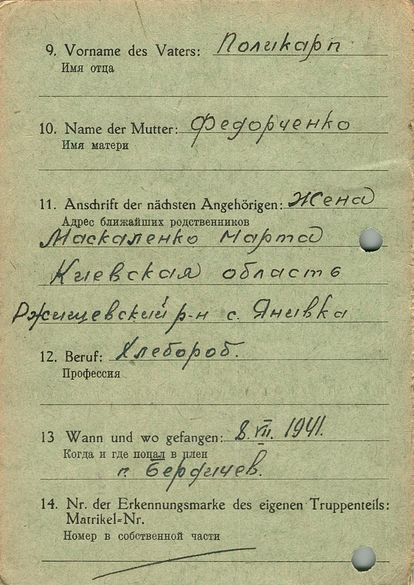 9. Vorname des Vaters: Поликарп
Имя отца
10. Name der Mutter: Федорченко
Имя матери
11. Anschrift der nächsten Angehörigen: Жена
Адрес ближайших родственников
Маскаленко Марта
Киевская область
Ржищевский р-н с. Янивка
12. Beruf: Хлебороб.
Профессия
13 Wann und wo gefangen: 8.VII. 1941.
Когда и где попал в плен
г. Бердичев.
14. Nr. der Erkennungsmarke des eigenen Truppenteils:
Matrikel-Nr.
Номер в собственной части